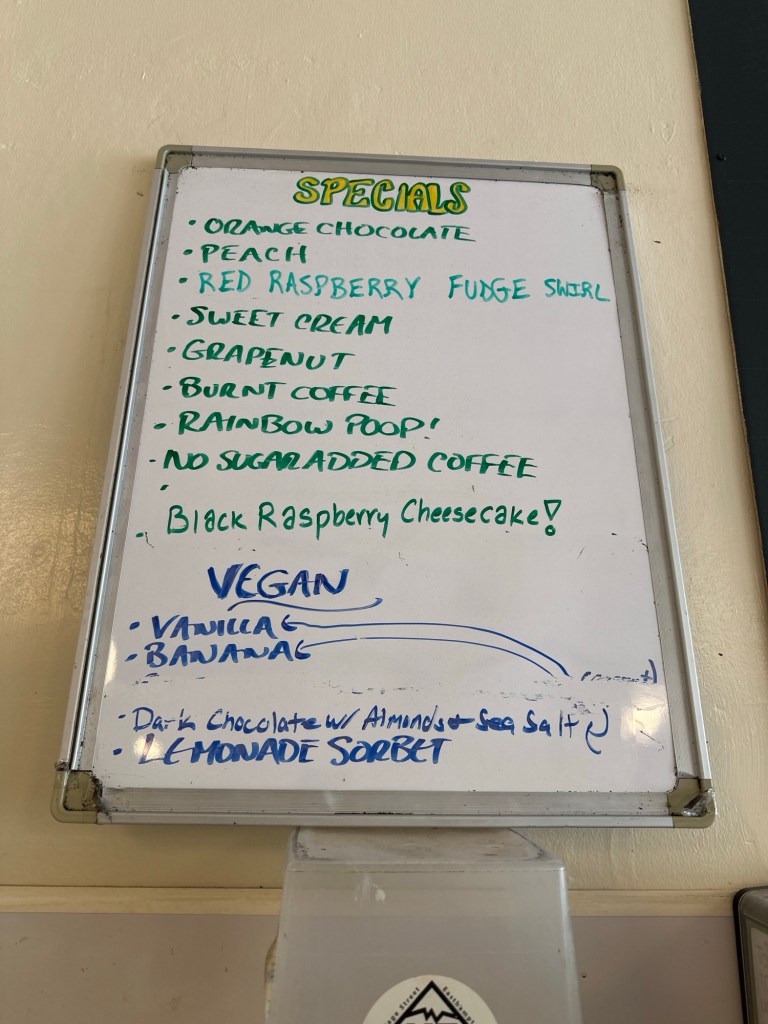 SPECIALS
• ORANGE CHOCOLATE
• PEACH
• RED RASPBERRY FUDGE SWIRL
• SWEET CREAM
• GRAPENUT
• BURNT COFFEE
• RAINBOW POOP!
• NO SUGAR ADDED COFFEE
•
• Black Raspberry Cheesecake!
VEGAN
• VANILLA
• BANANA
• Dark Chocolate w/ Almonds + Sea Salt
• LEMONADE SORBET